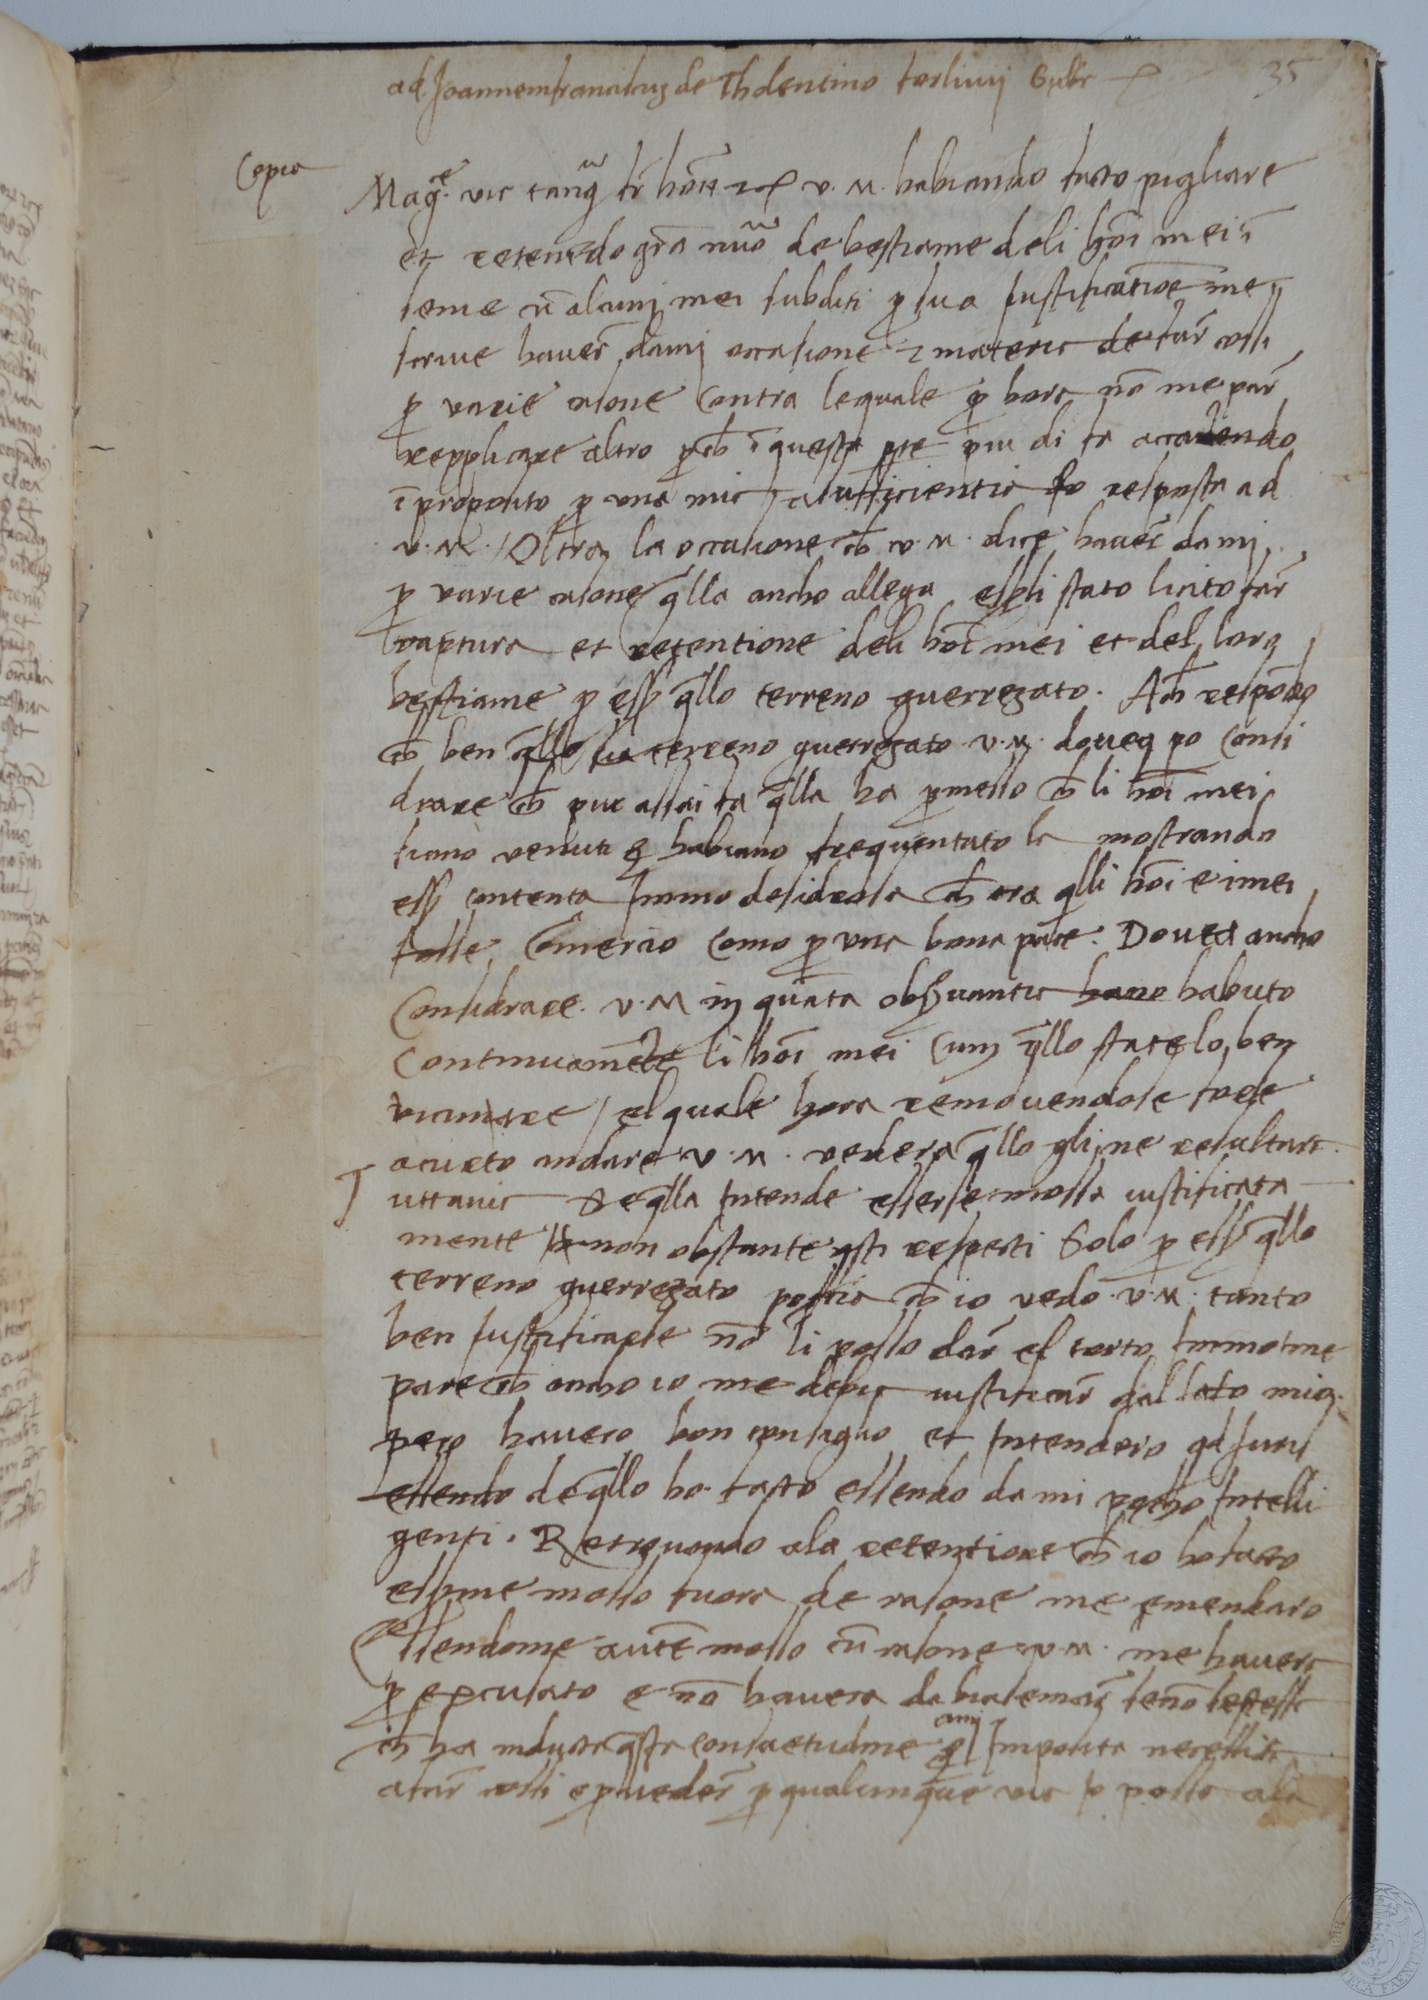 ad Joannemfranciscuz de Tholentino forlivij Gubr
35
Copia
Mag.ce vir tanq fr hon: v. M. habiando facto pigliare
et retenendo gran nuo de bestiame deli hoi mei i
seme cu alcuni mei subditi p sua Justificatioe me
scrive haver dami occasione & materia de far cossi
p varie casone Contra lequale p hora no me par
repplicare altro pch i questa pte piu di fa accadendo
i proposito p una mia a sufficientia fo resposta ad
v. M. / Oltra la occasione ch v. M. dice haver dami
p varie casone qlla ancho allega essli stato licito far
captura et retentione deli hoi mei et del loro
bestiame p ess qllo terreno guerregato. Ach respondo
ch ben qllo sia terreno guerregato v. M. doveva po Consi
drare ch pur assai fa qlla ha pmesso ch li hoi mei
siano venuti e habiano frequentato la mostrando
ess contenta Immo desiderosa ch ora qlli hoi e i mei
fosse Comercio como p una bona pace. Doveva ancho
Considrare v. M in quata observantia hane habuto
Continuamete li hoi mei Cum qllo state lo ben
vicinare / el quale hora removendose fate
acurto andare v. M. vedera qllo gli ne resultara
uttavia Se qlla Intende essersse mossa iustificata
mente non obstante qsti respecti Solo p ess qllo
terreno guerregato poscia ch io vedo v. M. tanto
ben Justificarse no li posso dar el torto Immo me
pare ch ancho io me debia iustificar dal lato mio
pero havero bon consiglio et Intendero qd Juris
essendo de qllo ho facto essendo da mi pocho Intelli
genti. Retrovando ala retentione ch io ho facto
esserme mosso fuora de rasone me emendaro
Essendome aute mosso cu rasone v. M. me havera
p excusato e no havera da biasemar seno se stessa
ch ha inducta qsta consuetudine ami p Imposita necessita
a far cossi e pveder p qualunque via se posso ala